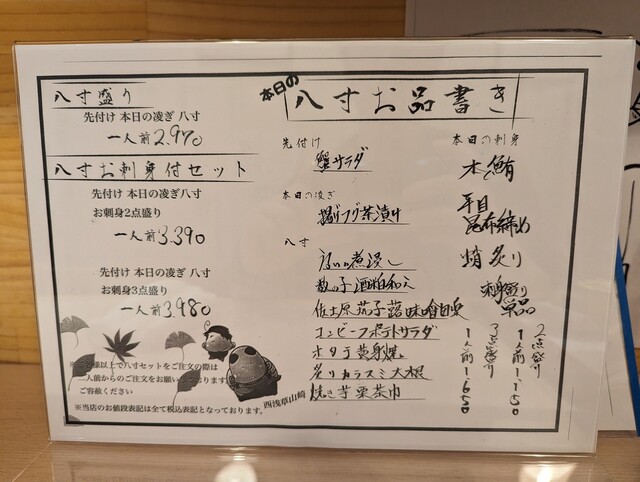 八寸盛り
先付け 本日の凌ぎ 八寸
一人前2.970
八寸お刺身付セット
先付け 本日の凌ぎ八寸
お刺身2点盛り
一人前3.390
先付け 本日の凌ぎ 八寸
お刺身3点盛り
一人前3.980
以上で八寸セットをご注文の際は
人前からのご注文をお願い
ご容赦ください
※当店のお値段表記は全て税込表記となっております。
西浅草山崎
本日の
八寸お品書き
先付け
蟹サラダ
本日の凌ぎ
フグ茶漬け
八寸
煮浸し
数の子酒粕和え
佐土原茄子蕗味噌
コンビーフポテトサラダ
ホタテ黄身焼
炙りカラスミ大根
焼き芋栗茶巾
本日の刺身
本鮪
平目
昆布締め
炙り
刺身盛り
単品
2点盛り
1人前1.150
3点盛り
1人前1.650